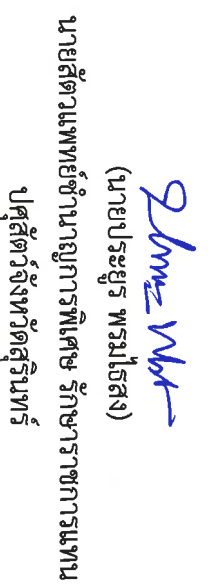 (นายประยูร พรมไธสง)
นายสัตวแพทย์ชำนาญการพิเศษ รักษาราชการแทน
ปศุสัตว์จังหวัดสุรินทร์